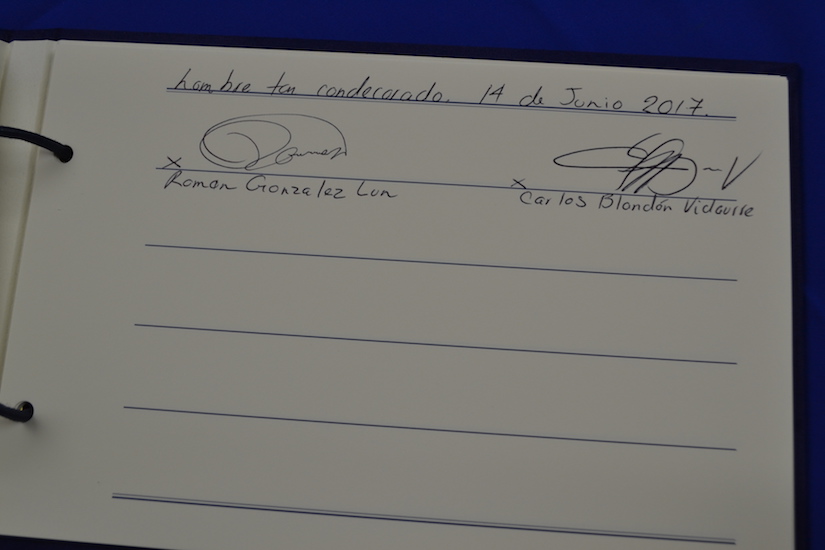 hombre tan condecorado. 14 de Junio 2017.
x
Roman Gonzalez Lun
x
Carlos Blondón Vidaurre